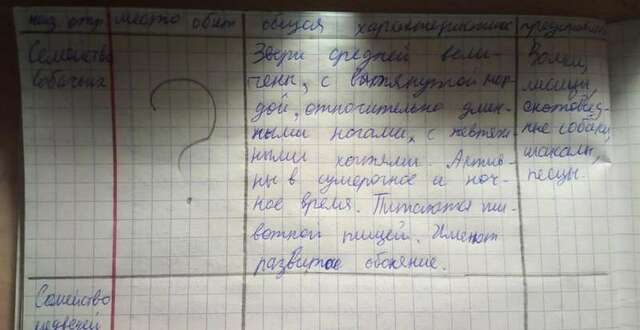 наз отр место обит общая характеристика представит
Семейство
Собачьих
?
Звери средней вели-
чены, с вытянутой мор-
дой, относительно длин-
ными ногами, с невтяж-
ными когтями. Актив-
ны в сумеречное и ноч-
ное время. Питаются жи-
вотной пищей. Имеют
развитое обоняние.
Волки,
лисицы,
енотовид-
ные собаки,
шакалы,
песцы.
Семейство
медведей